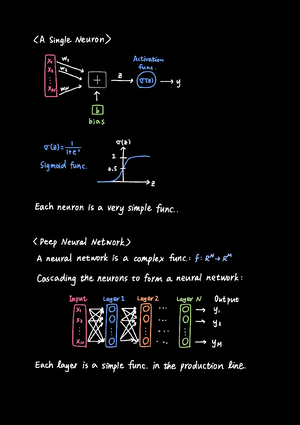 <A Single Neuron>
x₁ w₁
x₂ w₂
⋮
x_N w_N
+
z
Activation
func.
σ(z)
y
b
bias
σ(z)=1/(1+e⁻ᶻ)
Sigmoid func.
σ(z)
1
0.5
z
Each neuron is a very simple func..
<Deep Neural Network>
A neural network is a complex func.: f: Rᴺ→Rᴹ
Cascading the neurons to form a neural network:
Input Layer 1 Layer 2 Layer N Output
x₁ ... y₁
x₂ ... y₂
⋮
x_N ... y_M
Each layer is a simple func. in the production line.